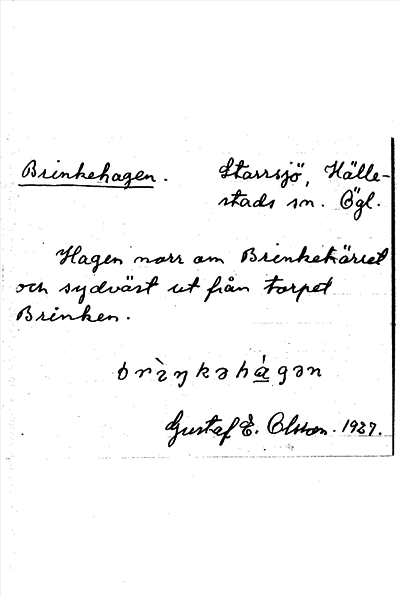 Brinkehagen. Starrsjö, Hälle-
stads sn. Ögl.
Hagen norr om Brinkekärret
och sydväst ut från torpet
Brinken.
brìŋkəhá̱gən
Gustaf E. Olsson. 1927.